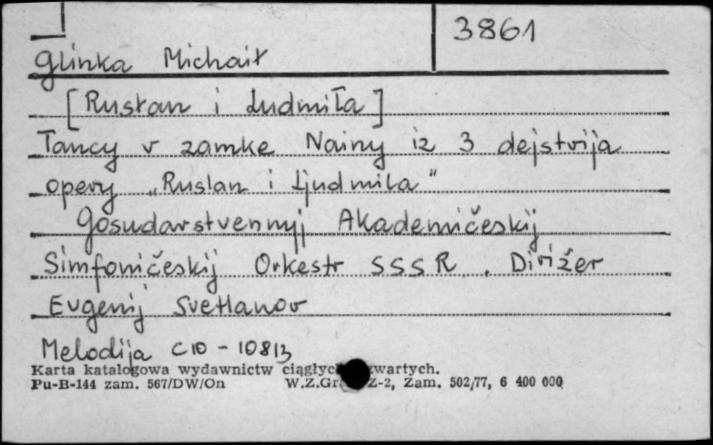 3861
Glinka Michaił
[Rusłan i Ludmiła]
Tancy v zamke Nainy iz 3 dejstvija
opery „Ruslan i Ljudmila"
Gosudarstvennyj Akademičeskij
Simfoničeskij Orkestr SSSR. Dirižer
Evgenij Svetlanov
Melodija C10-10813
Karta katalogowa wydawnictw zwartych.
Pu-B-144 zam. 567/DW/On W.Z.Gr. Z-2, Zam. 502/77, 6 400 000